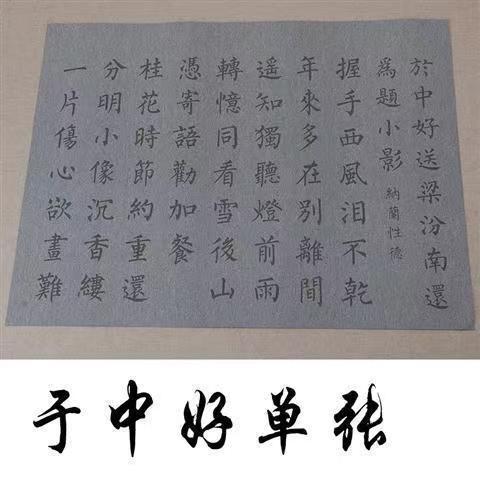 於中好送梁汾南還
為題小影 納蘭性德
握手西風泪不乾
年來多在別離間
遥知獨聽燈前雨
轉憶同看雪後山
憑寄語勸加餐
桂花時節約重還
分明小像沉香縷
一片傷心欲畫難
于中好单张